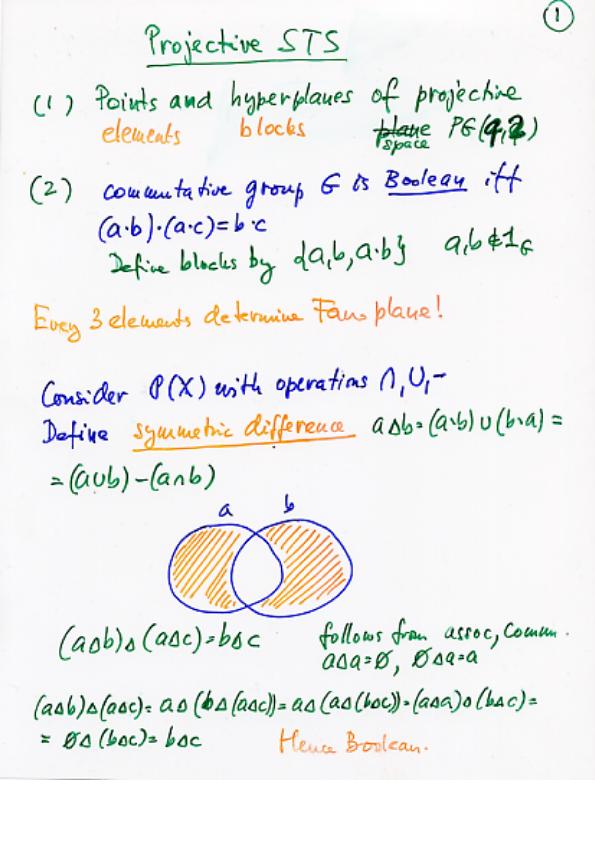 1
Projective STS
(1) Points and hyperplanes of projective
elements blocks plane space PG(9,2)
(2) commutative group G is Boolean iff
(a·b)·(a·c)=b·c
Define blocks by {a,b,a·b} a,b∉1_G
Every 3 elements determine Fano plane!
Consider P(X) with operations ∩,∪,-
Define symmetric difference a∆b=(a∖b)∪(b∖a)=
=(a∪b)-(a∩b)
a b
(a∆b)∆(a∆c)=b∆c follows from assoc, comm.
a∆a=∅, ∅∆a=a
(a∆b)∆(a∆c)= a∆(b∆(a∆c))=a∆(a∆(b∆c))=(a∆a)∆(b∆c)=
= ∅∆(b∆c)=b∆c Hence Boolean.